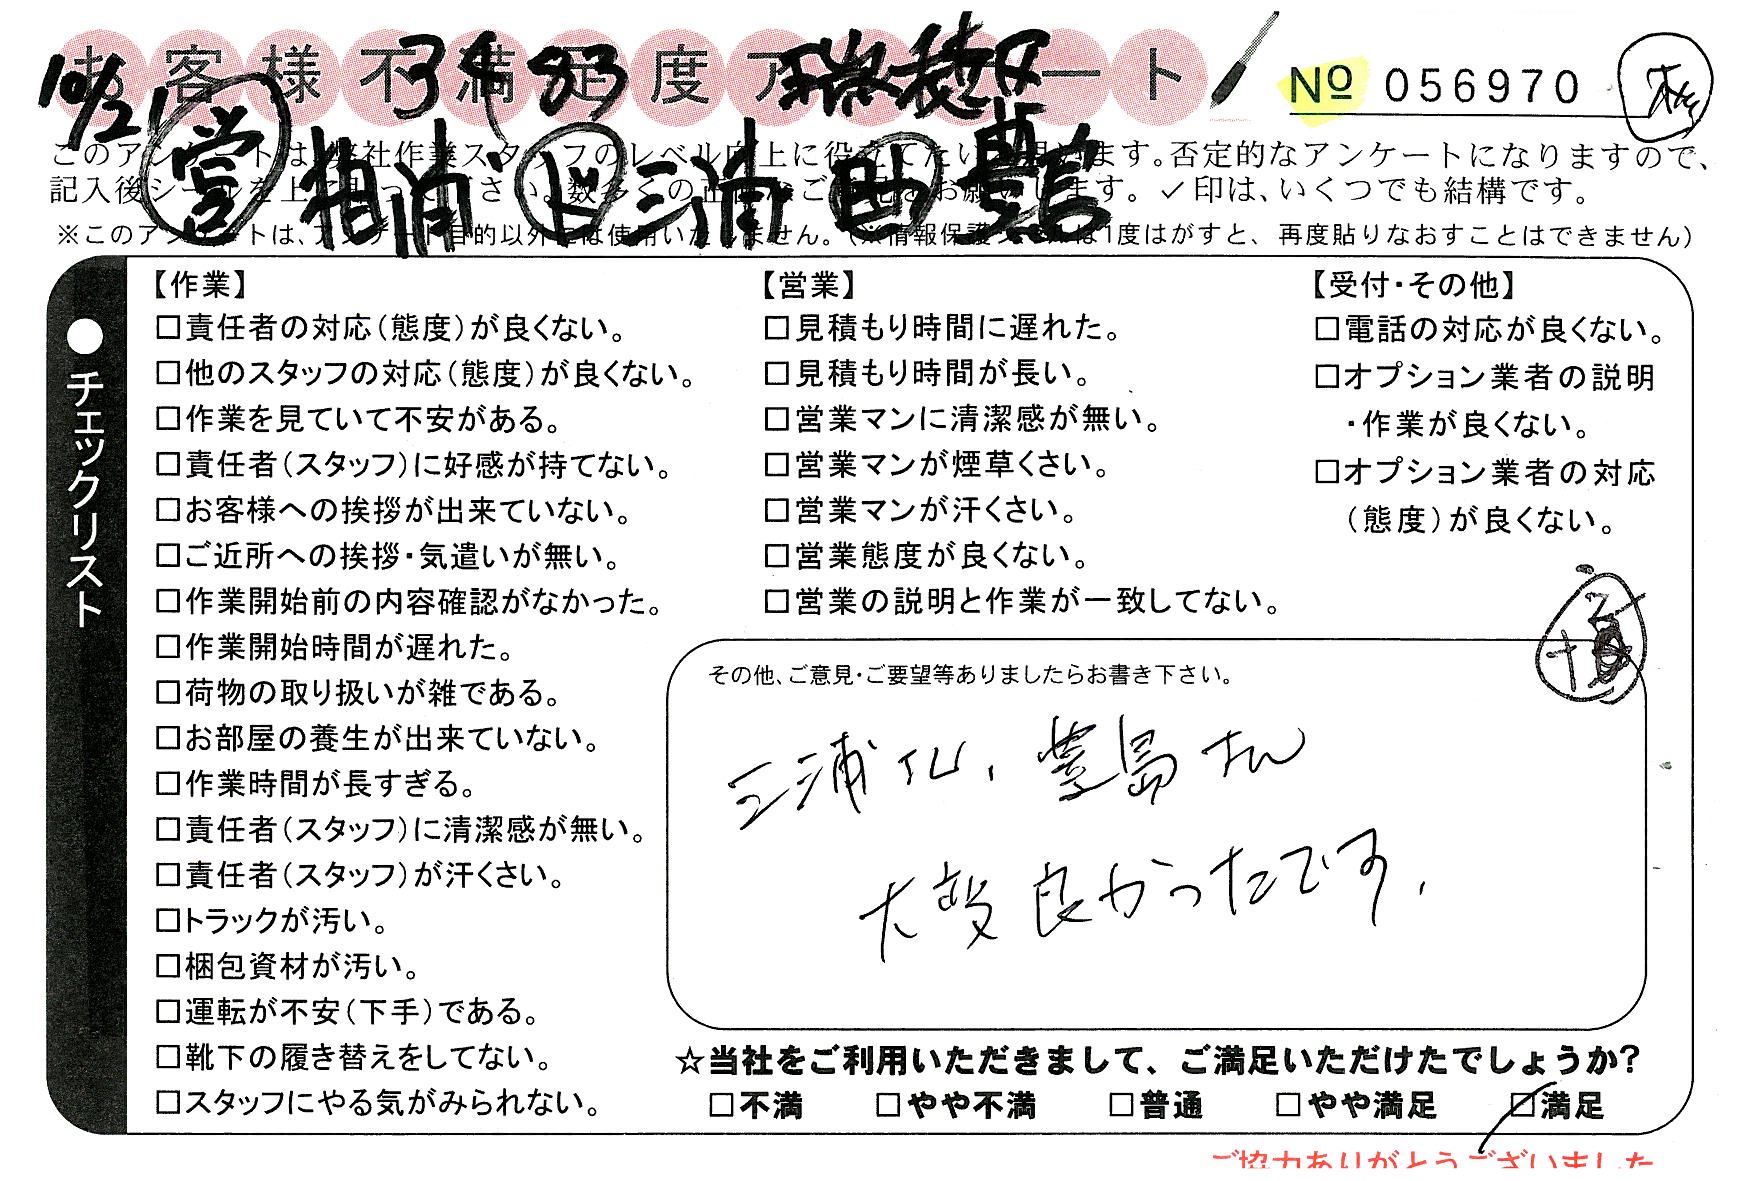 お客様不満足度アンケート
10/21 3483 瑞穂区
№ 056970
営 相浦 ド 三浦 助 豊島
このアンケートは、弊社作業スタッフのレベル向上に役立てたいと思います。否定的なアンケートになりますので、
記入後シールを上に貼って下さい。数多くの正直なご意見をお願いします。✓印は、いくつでも結構です。
※このアンケートは、アンケート目的以外には使用いたしません。(※情報保護シールは1度はがすと、再度貼りなおすことはできません)
●チェックリスト
【作業】
□責任者の対応(態度)が良くない。
□他のスタッフの対応(態度)が良くない。
□作業を見ていて不安がある。
□責任者(スタッフ)に好感が持てない。
□お客様への挨拶が出来ていない。
□ご近所への挨拶・気遣いが無い。
□作業開始前の内容確認がなかった。
□作業開始時間が遅れた。
□荷物の取り扱いが雑である。
□お部屋の養生が出来ていない。
□作業時間が長すぎる。
□責任者(スタッフ)に清潔感が無い。
□責任者(スタッフ)が汗くさい。
□トラックが汚い。
□梱包資材が汚い。
□運転が不安(下手)である。
□靴下の履き替えをしてない。
□スタッフにやる気がみられない。
【営業】
□見積もり時間に遅れた。
□見積もり時間が長い。
□営業マンに清潔感が無い。
□営業マンが煙草くさい。
□営業マンが汗くさい。
□営業態度が良くない。
□営業の説明と作業が一致してない。
【受付・その他】
□電話の対応が良くない。
□オプション業者の説明
・作業が良くない。
□オプション業者の対応
(態度)が良くない。
その他、ご意見・ご要望等ありましたらお書き下さい。
三浦さん、豊島さん
大変良かったです.
☆当社をご利用いただきまして、ご満足いただけたでしょうか?
□不満 □やや不満 □普通 □やや満足 ☑満足
ご協力ありがとうございました